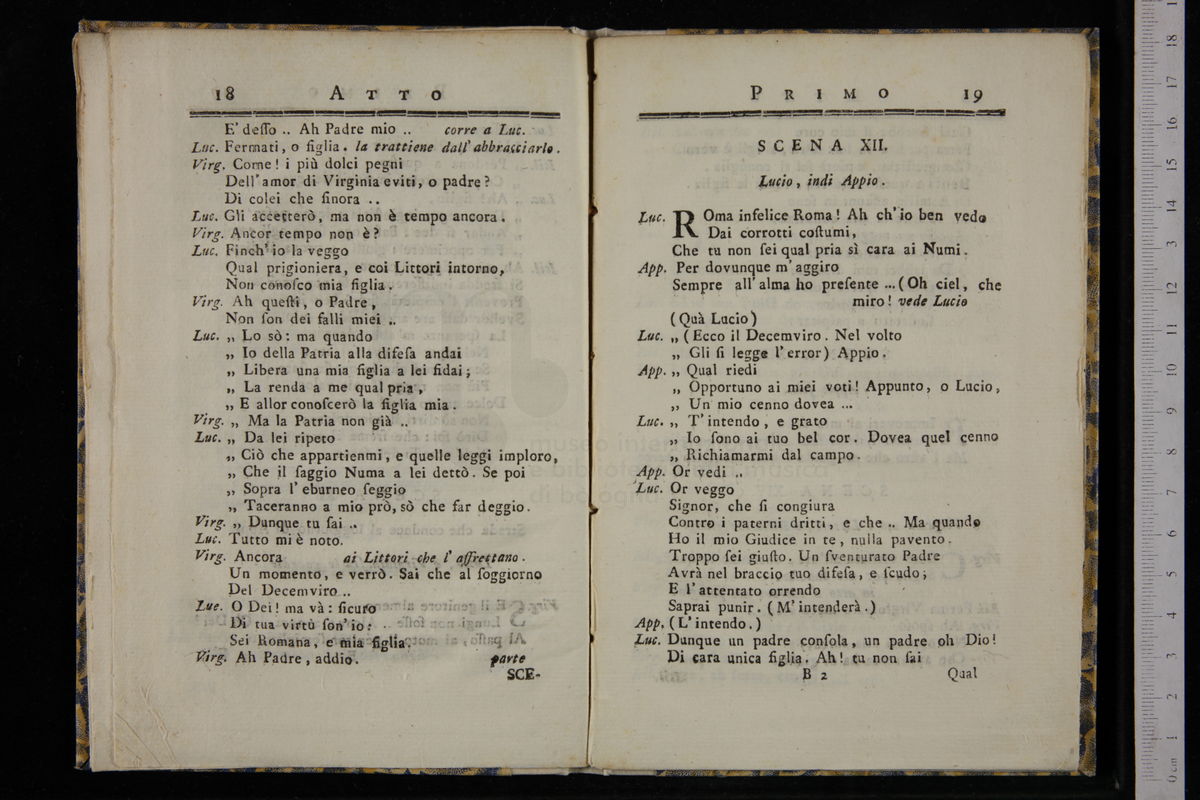 18 ATTO
E' deſſo .. Ah Padre mio .. corre a Luc.
Luc. Fermati, o figlia. la trattiene dall' abbracciarlo.
Virg. Come! i più dolci pegni
Dell' amor di Virginia eviti, o padre?
Di colei che finora ..
Luc. Gli accetterò, ma non è tempo ancora.
Virg. Ancor tempo non è?
Luc. Finch' io la veggo
Qual prigioniera, e coi Littori intorno,
Non conoſco mia figlia.
Virg. Ah queſti, o Padre,
Non ſon dei falli miei ..
Luc. „ Lo sò: ma quando
„ Io della Patria alla difeſa andai
„ Libera una mia figlia a lei fidai;
„ La renda a me qual pria,
„ E allor conoſcerò la figlia mia.
Virg. „ Ma la Patria non già ..
Luc. „ Da lei ripeto
„ Ciò che appartienmi, e quelle leggi imploro,
„ Che il ſaggio Numa a lei dettò. Se poi
„ Sopra l' eburneo ſeggio
„ Taceranno a mio prò, sò che far deggio.
Virg. „ Dunque tu ſai ..
Luc. Tutto mi è noto.
Virg. Ancora ai Littori che l' affrettano.
Un momento, e verrò. Sai che al ſoggiorno
Del Decemviro ..
Luc. O Dei! ma và: ſicuro
Di tua virtù ſon' io:
Sei Romana, e mia figlia.
Virg. Ah Padre, addio. parte
SCE-
PRIMO 19
SCENA XII.
Lucio, indi Appio.
Luc. ROma infelice Roma! Ah ch' io ben vedo
Dai corrotti coſtumi,
Che tu non ſei qual pria sì cara ai Numi.
App. Per dovunque m' aggiro
Sempre all' alma ho preſente ... (Oh ciel, che
miro! vede Lucio
(Quà Lucio)
Luc. „ (Ecco il Decemviro. Nel volto
„ Gli ſi legge l' error) Appio.
App. „ Qual riedi
„ Opportuno ai miei voti! Appunto, o Lucio,
„ Un mio cenno dovea ...
Luc. „ T' intendo, e grato
„ Io ſono ai tuo bel cor. Dovea quel cenno
„ Richiamarmi dal campo.
App. Or vedi ..
Luc. Or veggo
Signor, che ſi congiura
Contro i paterni dritti, e che .. Ma quando
Ho il mio Giudice in te, nulla pavento.
Troppo ſei giuſto. Un ſventurato Padre
Avrà nel braccio tuo difeſa, e ſcudo;
E l' attentato orrendo
Saprai punir. (M' intenderà.)
App. (L' intendo.)
Luc. Dunque un padre conſola, un padre oh Dio!
Di cara unica figlia. Ah! tu non ſai
B 2 Qual